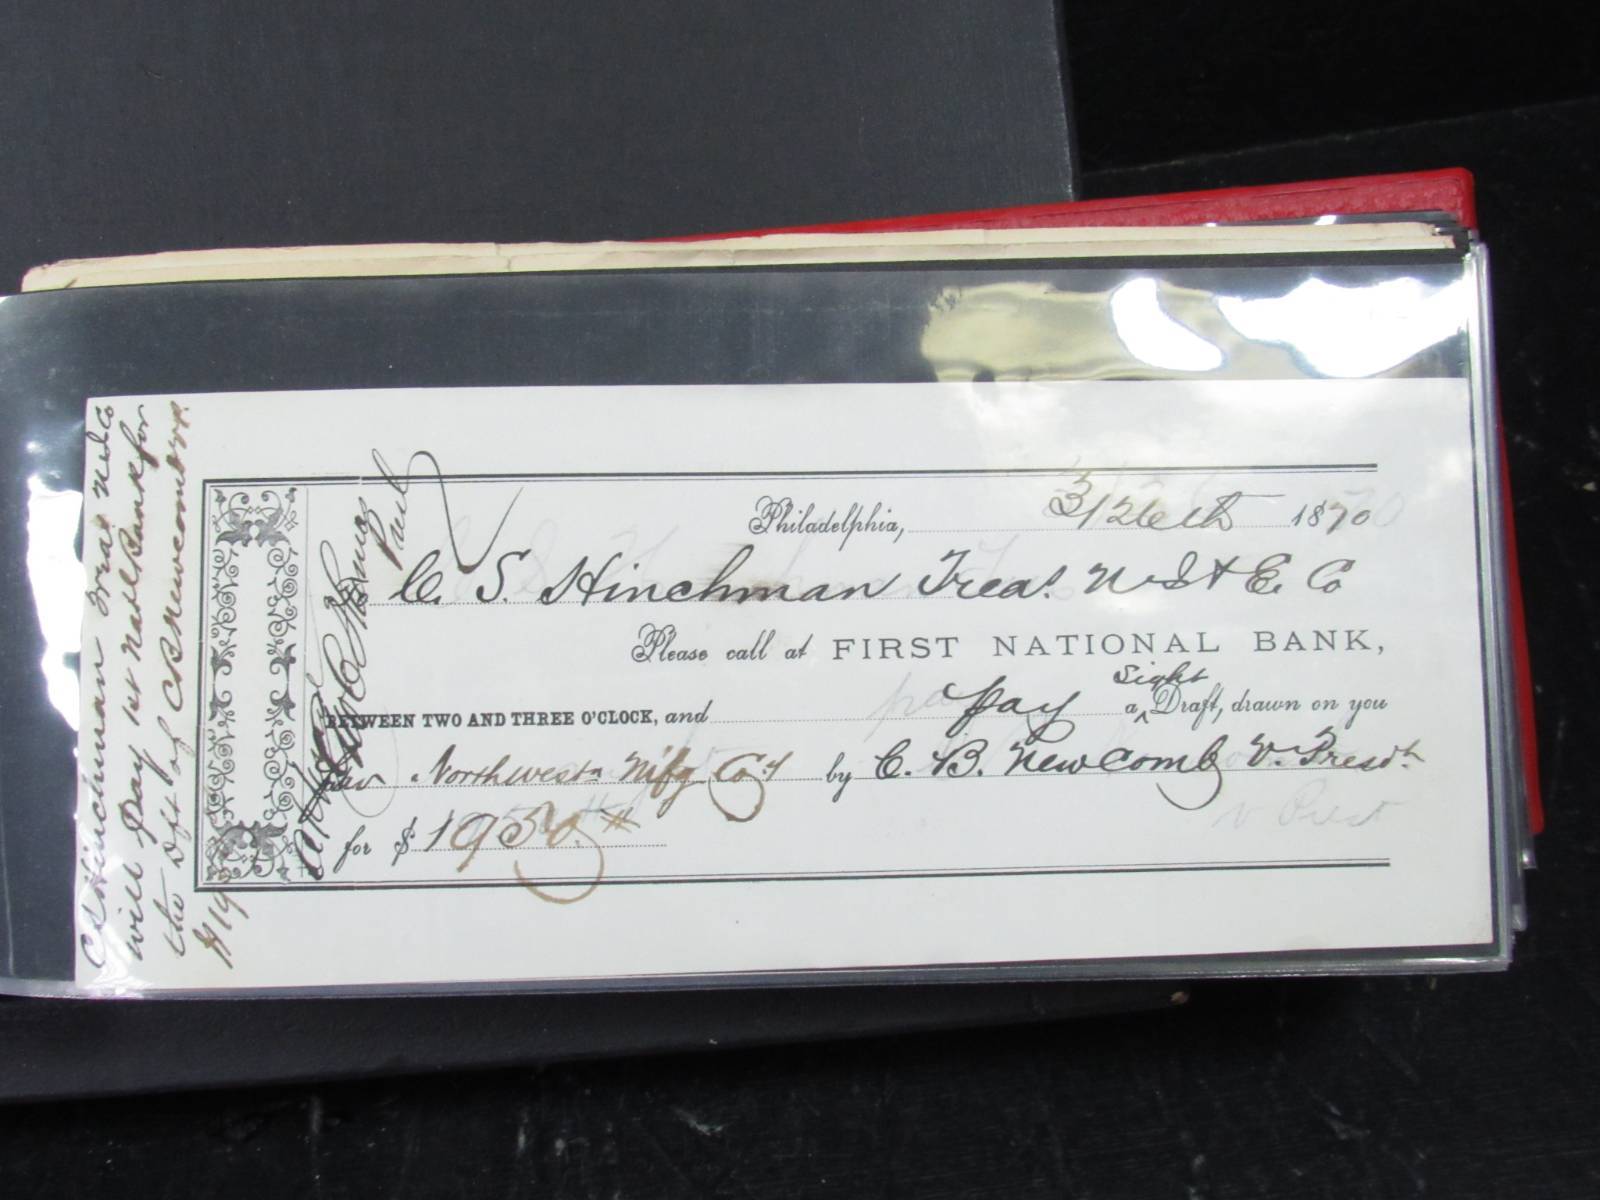 Philadelphia, 3/26th 1870
C. S. Hinchman Treas. N S & E. Co
Please call at FIRST NATIONAL BANK,
BETWEEN TWO AND THREE O'CLOCK, and pay a Sight Draft, drawn on you
fav Northwestn Mifg Coy by C. B. Newcomb V. Presdt
for $ 1950.
v Prest
Paid
C S Hinchman Treas N S Co
will pay 1st Natl Bank for
the Dft of C B Newcomb V P.
$19